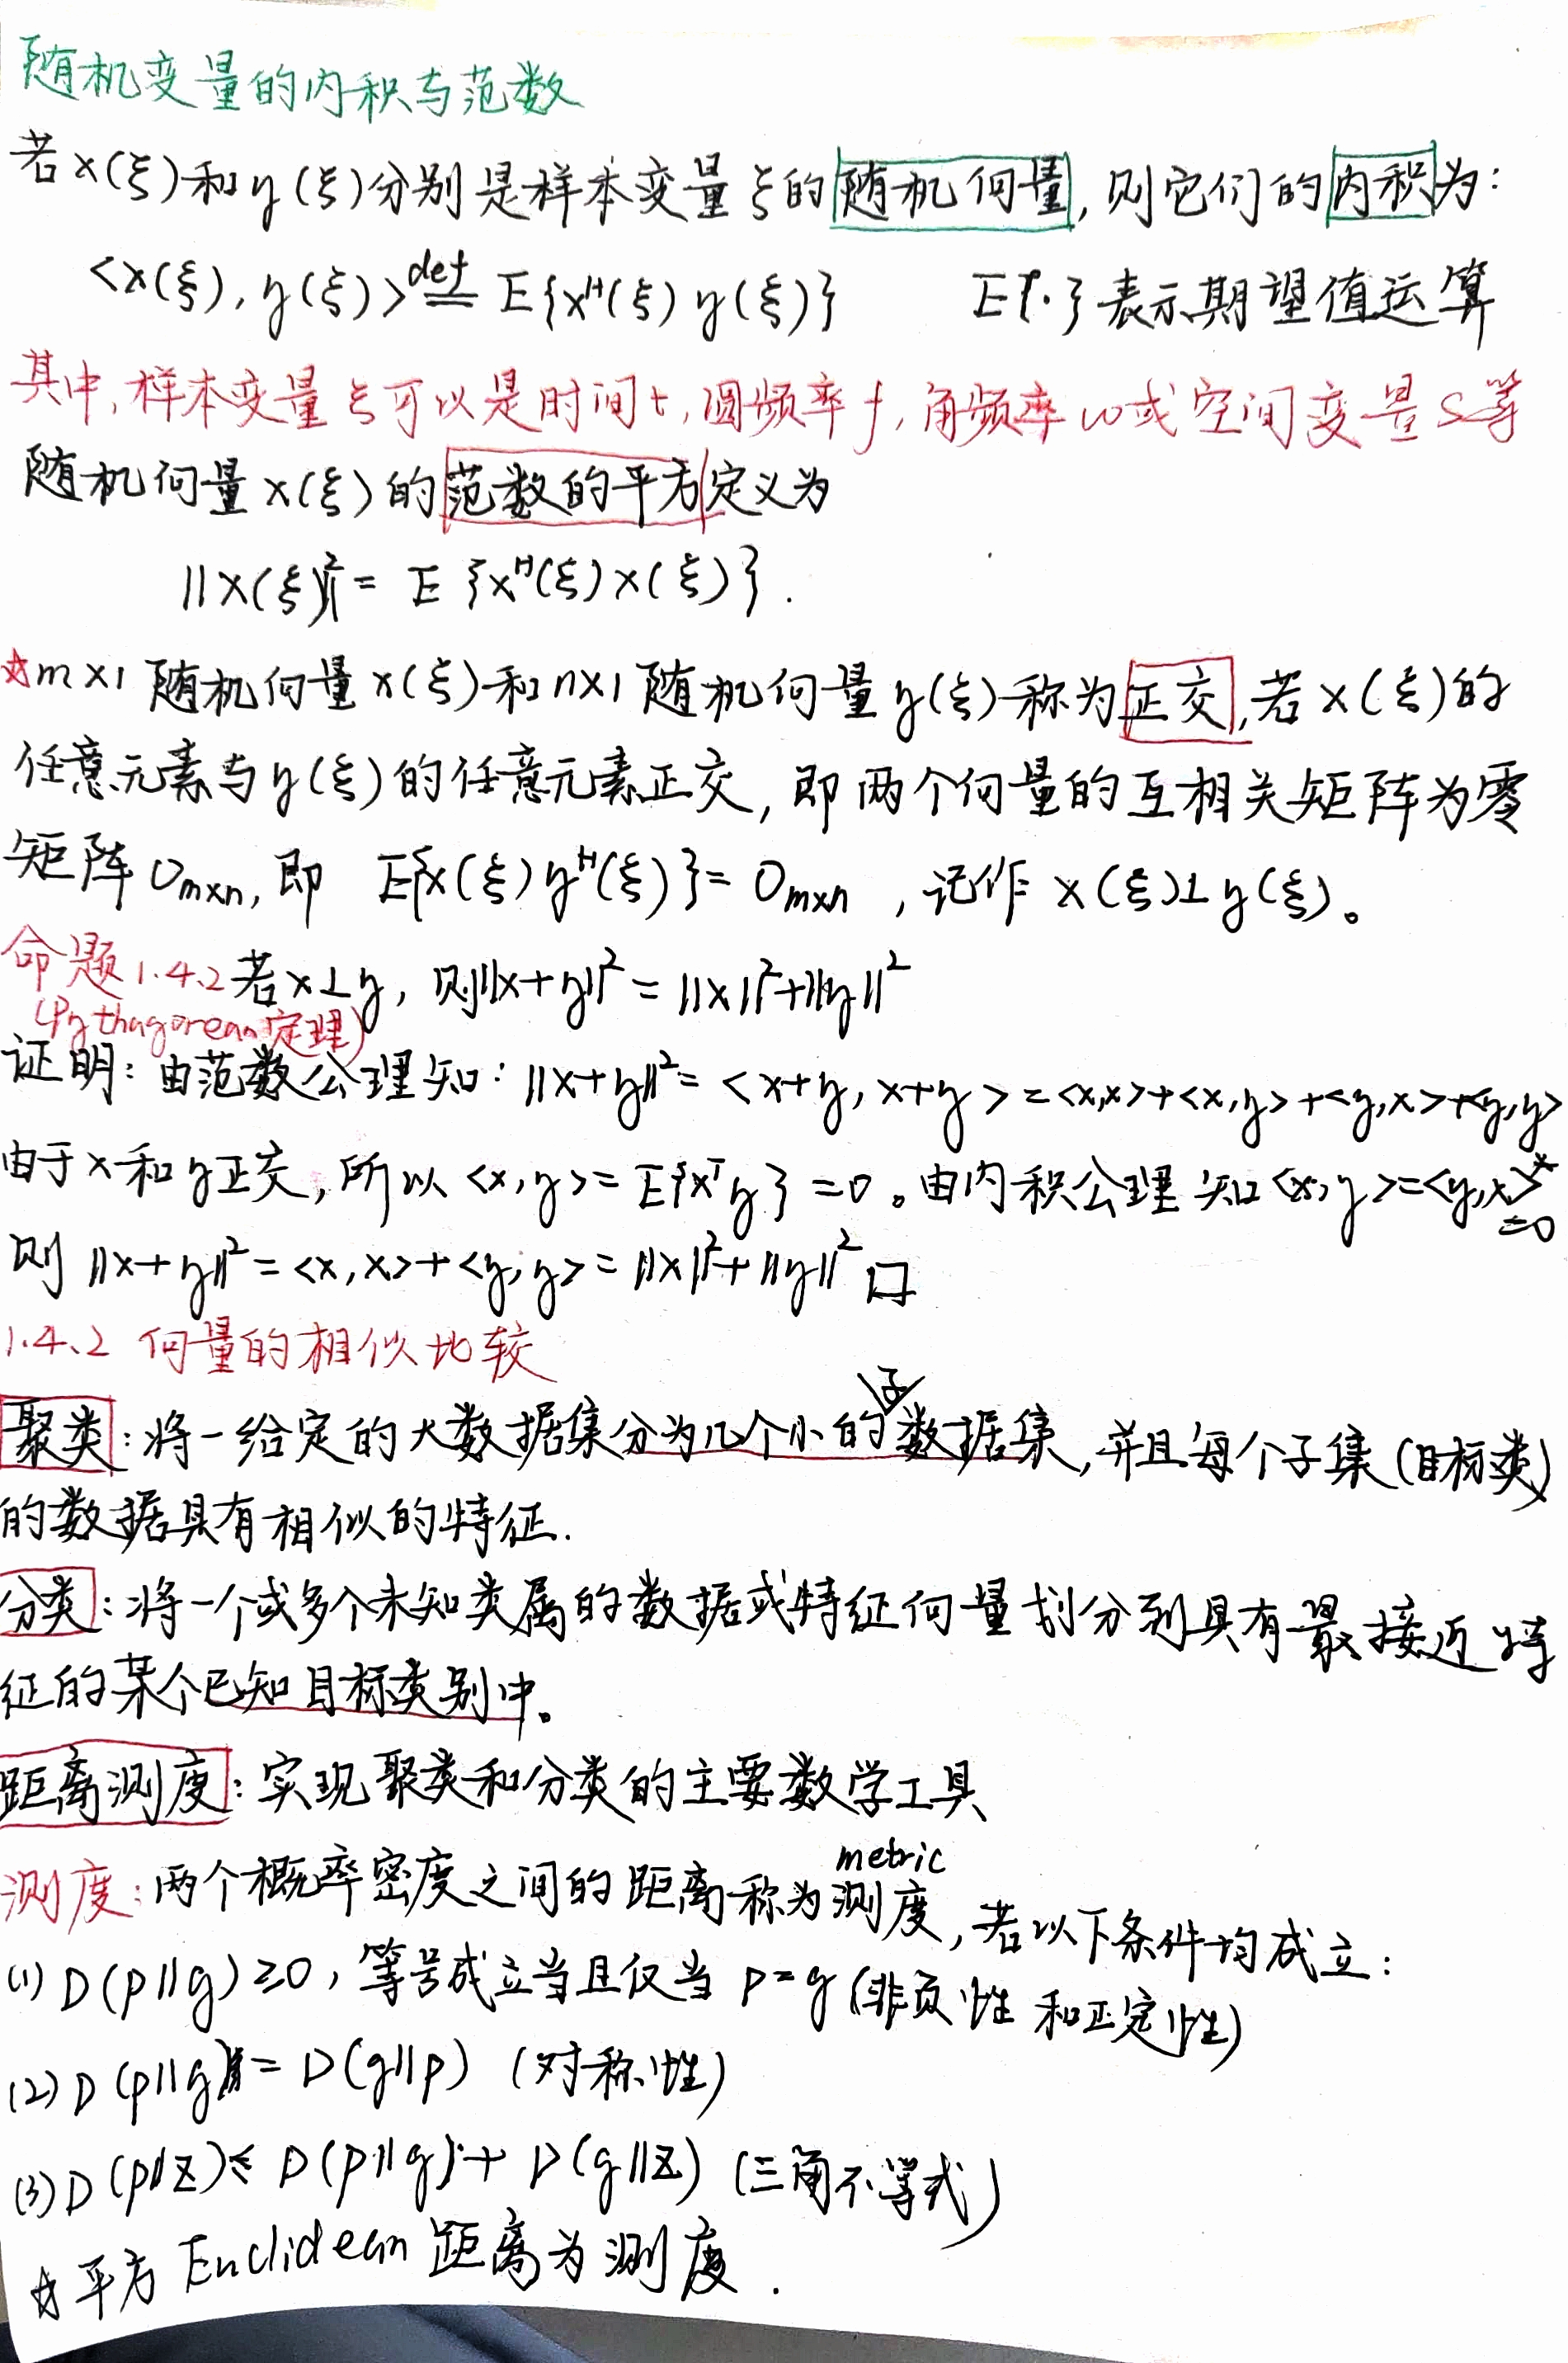 随机变量的内积与范数
若x(ξ)和y(ξ)分别是样本变量ξ的随机向量,则它们的内积为:
<x(ξ), y(ξ)> def= E{x^H(ξ) y(ξ)} E{·}表示期望值运算
其中,样本变量ξ可以是时间t,圆频率f,角频率ω或空间变量S等
随机向量x(ξ)的范数的平方定义为
||x(ξ)||² = E{x^H(ξ)x(ξ)}.
☆m×1 随机向量x(ξ)和n×1随机向量y(ξ)称为正交,若x(ξ)的
任意元素与y(ξ)的任意元素正交,即两个向量的互相关矩阵为零
矩阵O_{m×n},即 E{x(ξ)y^H(ξ)}=O_{m×n},记作x(ξ)⊥y(ξ)。
命题1.4.2若x⊥y,则||x+y||²=||x||²+||y||²
(Pythagorean定理)
证明:由范数公理知:||x+y||²=<x+y, x+y>=<x,x>+<x,y>+<y,x>+<y,y>
由于x和y正交,所以<x,y>=E{x^T y}=0。由内积公理知<x,y>=<y,x>*=0
则||x+y||²=<x,x>+<y,y>=||x||²+||y||² □
1.4.2 向量的相似比较
聚类:将一给定的大数据集分为几个小的子数据集,并且每个子集(目标类)
的数据具有相似的特征.
分类:将一个或多个未知类属的数据或特征向量划分到具有最接近特
征的某个已知目标类别中。
距离测度:实现聚类和分类的主要数学工具
测度:两个概率密度之间的距离称为测度metric,若以下条件均成立:
(1) D(p||g)≥0,等号成立当且仅当p=g(非负性和正定性)
(2) D(p||g)=D(g||p) (对称性)
(3) D(p||z)≤D(p||g)+D(g||z) (三角不等式)
☆平方Euclidean距离为测度.